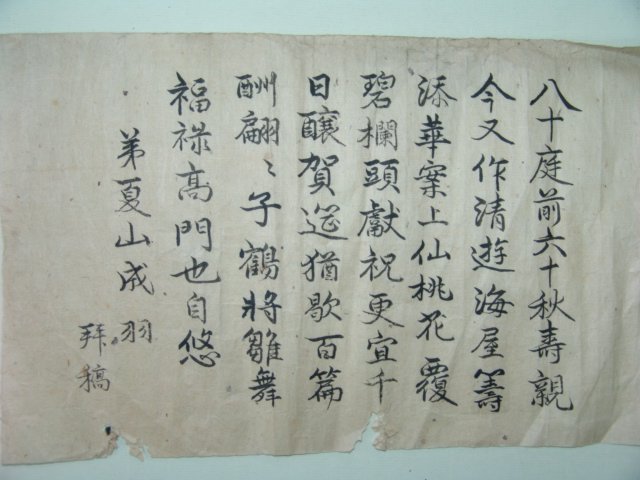 八十庭前六十秋壽親
今又作清遊海屋籌
添華案上仙桃花覆
碧欄頭獻祝更宜千
日釀賀筵猶歇百篇
酬翩〻子鶴將雛舞
福祿高門也自悠
弟夏山成羽
拜稿